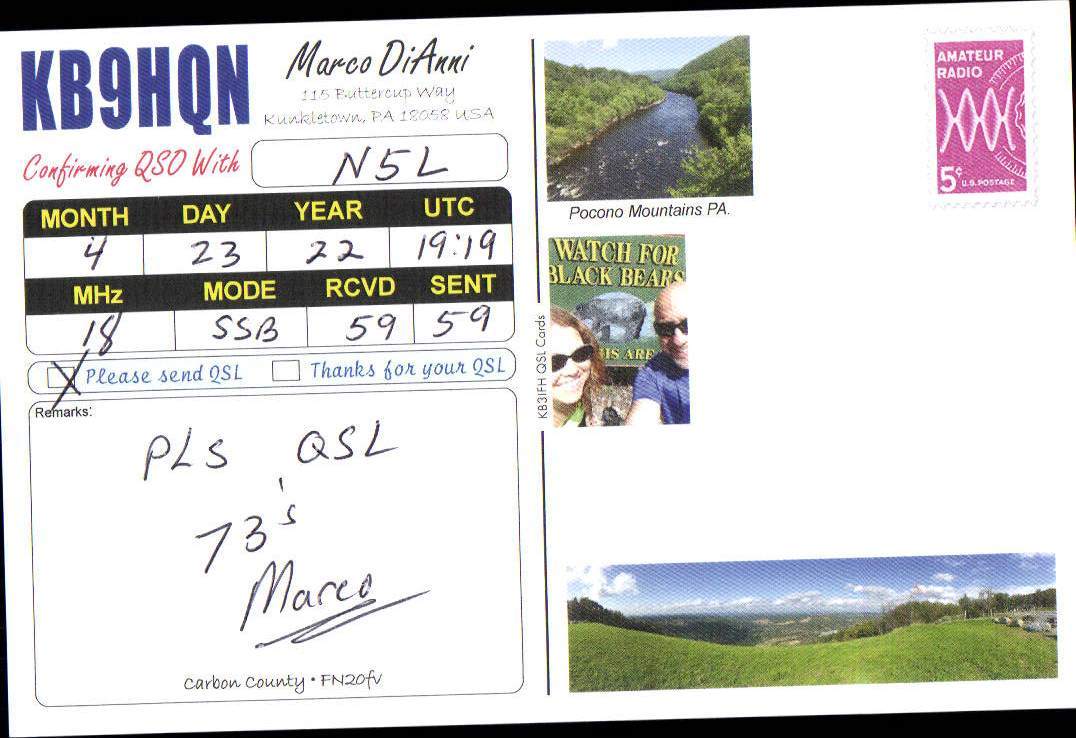 KB9HQN
Marco DiAnni
115 Buttercup Way
Kunkletown, PA 18058 USA
Confirming QSO With N5L
MONTH DAY YEAR UTC
4 23 22 19:19
MHz MODE RCVD SENT
18 SSB 59 59
X Please send QSL Thanks for your QSL
Remarks:
PLS QSL
73's
Marco
Carbon County • FN20fv
KB3IFH QSL Cards
Pocono Mountains PA.
WATCH FOR
BLACK BEARS
IS ARE
AMATEUR
RADIO
5¢ U.S. POSTAGE